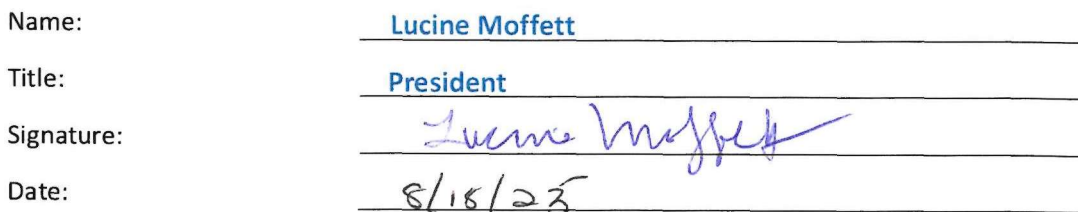 Name: Lucine Moffett
Title: President
Signature: Lucine Moffett
Date: 8/18/25